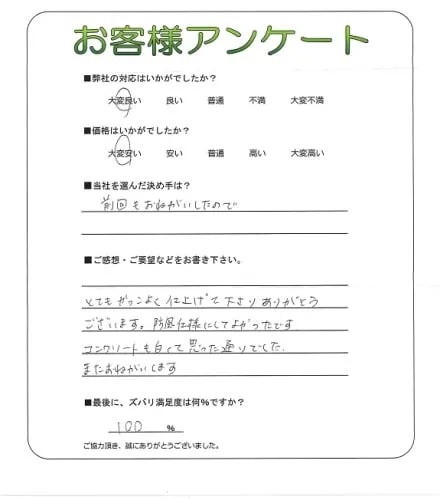 お客様アンケート
■弊社の対応はいかがでしたか?
大変良い 良い 普通 不満 大変不満
■価格はいかがでしたか?
大変安い 安い 普通 高い 大変高い
■当社を選んだ決め手は?
前回もおねがいしたので
■ご感想・ご要望などをお書き下さい。
とてもかっこよく仕上げて下さりありがとう
ございます。防風仕様にしてよかったです
コンクリートも白くて思った通りでした。
またおねがいします
■最後に、ズバリ満足度は何%ですか?
100 %
ご協力頂き、誠にありがとうございました。